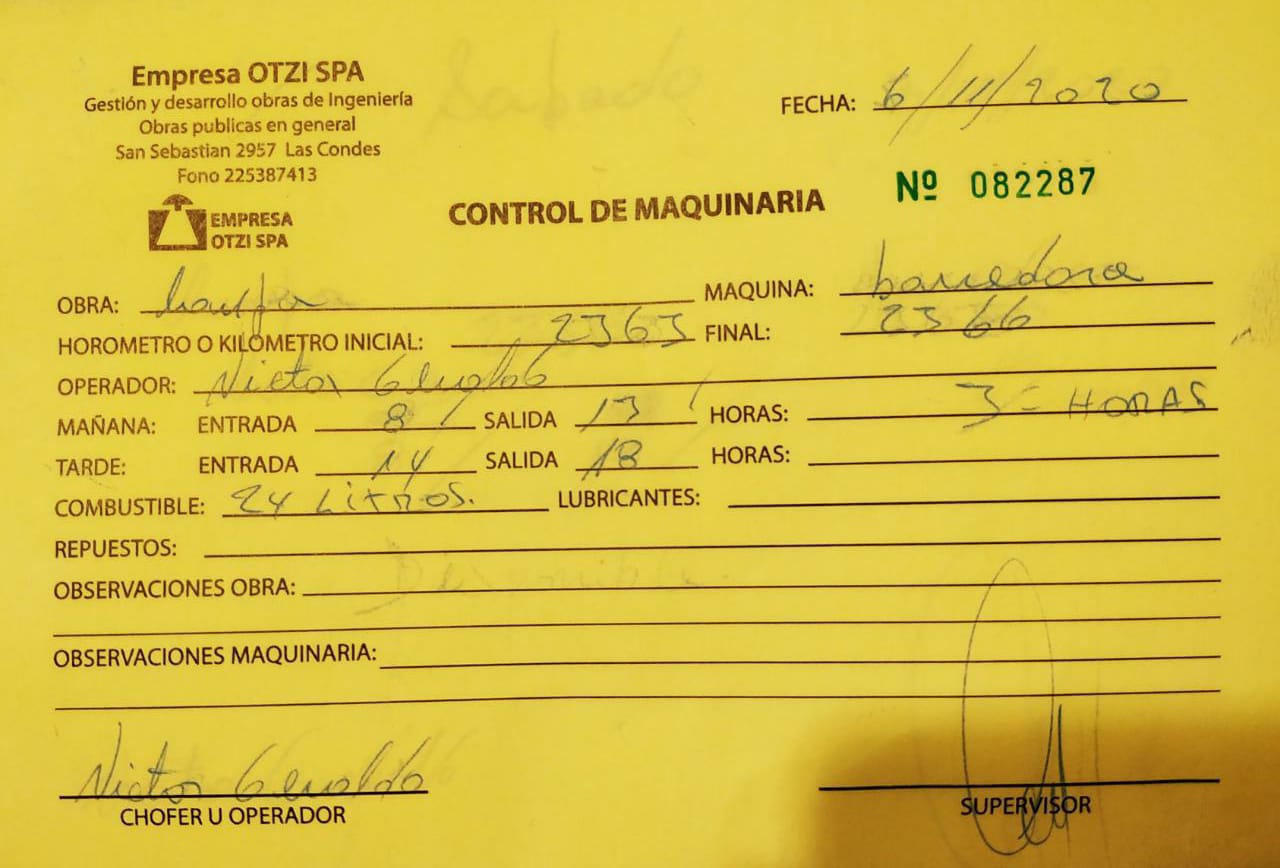 Empresa OTZI SPA
Gestión y desarrollo obras de Ingeniería
Obras publicas en general
San Sebastian 2957 Las Condes
Fono 225387413
EMPRESA
OTZI SPA
FECHA: 6/11/2020
Nº 082287
CONTROL DE MAQUINARIA
OBRA: MAQUINA: barredora
HOROMETRO O KILOMETRO INICIAL: 2363 FINAL: 2366
OPERADOR: Victor
MAÑANA: ENTRADA 8 SALIDA 13 HORAS: 3 - HORAS
TARDE: ENTRADA 14 SALIDA 18 HORAS:
COMBUSTIBLE: 24 Litros. LUBRICANTES:
REPUESTOS:
OBSERVACIONES OBRA:
OBSERVACIONES MAQUINARIA:
Victor
CHOFER U OPERADOR
SUPERVISOR